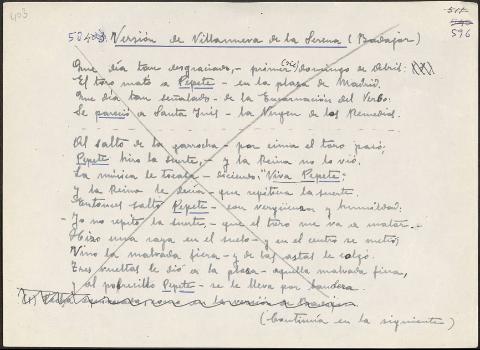 403
511
540
596
504 403 Versión de Villanueva de la Serena (Badajoz)
Que día tan desgraciado,- primer (sic) domingo de Abril:
El toro mató a Pepete - en la plaza de Madrid.
Que día tan señalado - de la Encarnación del Verbo.
Se pareció a Santa Inés - la Virgen de los Remedios.
Al salto de la garrocha - por cima el toro pasó;
Pepete hizo la suerte,- y la Reina no lo vió.
La música le tocaba - diciendo: "Viva Pepete";
y la Reina le decía - que repitiera la suerte.
Entonces saltó Pepete - con vergüenza y humildad:
- Yo no repito la suerte,- que el toro me va a matar.-
Hizo una raya en el suelo - y en el centro se metió;
Vino la malvada fiera - y de las astas le colgó.
Tres vueltas le dió a la plaza - aquella malvada fiera,
y al pobrecillo Pepete - se le lleva por bandera.
(Continúa en la siguiente)